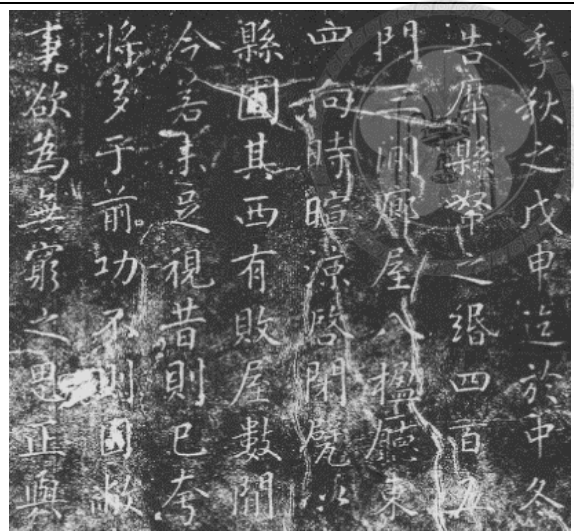 季秋之戊申迄於中冬
告糜縣帑之緡四百五
門三間廊屋八楹廳東
四向時暄涼啓閉甃以
縣圃其西有敗屋數間
今若未足視昔則已夸
將多于前功不則因敝
事欲為無窮之思正與